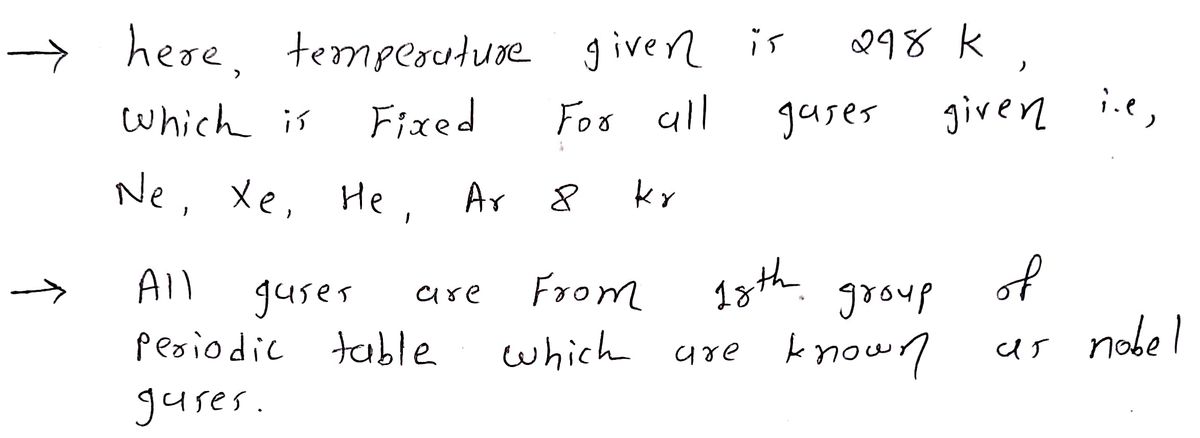 → here, temperature given is 298 k,
which is Fixed For all gases given i.e,
Ne, Xe, He, Ar & kr
→ All gases are From 18th. group of
periodic table which are known as nobel
gases.